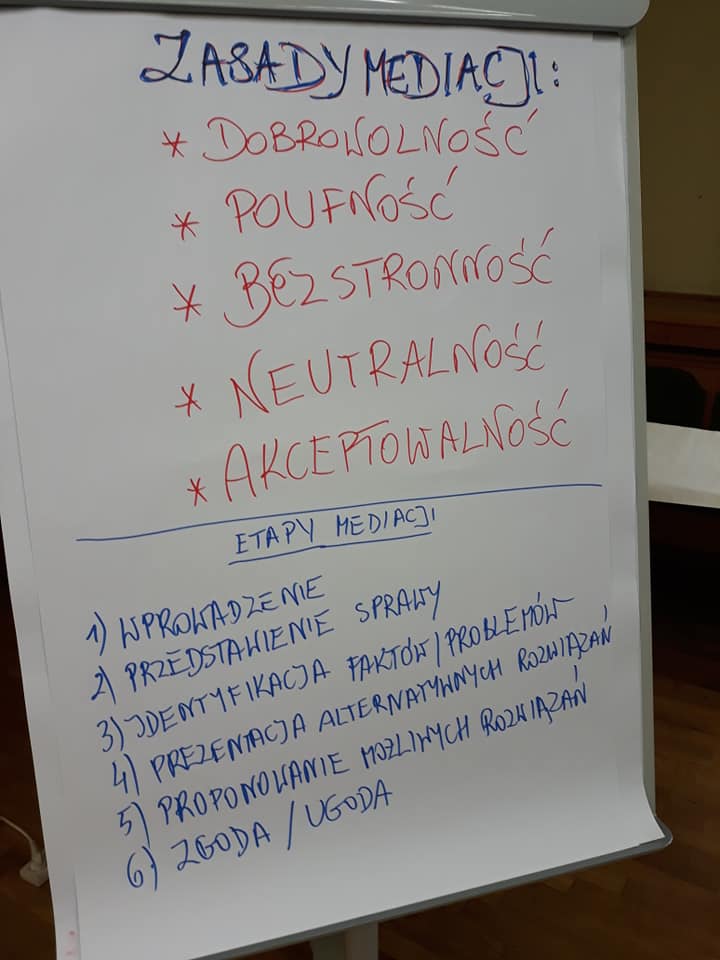 ZASADY MEDIACJI:
* DOBROWOLNOŚĆ
* POUFNOŚĆ
* BEZSTRONNOŚĆ
* NEUTRALNOŚĆ
* AKCEPTOWALNOŚĆ
ETAPY MEDIACJI
1) WPROWADZENIE
2) PRZEDSTAWIENIE SPRAWY
3) IDENTYFIKACJA FAKTÓW/PROBLEMÓW
4) PREZENTACJA ALTERNATYWNYCH ROZWIĄZAŃ
5) PROPONOWANIE MOŻLIWYCH ROZWIĄZAŃ
6) ZGODA / UGODA